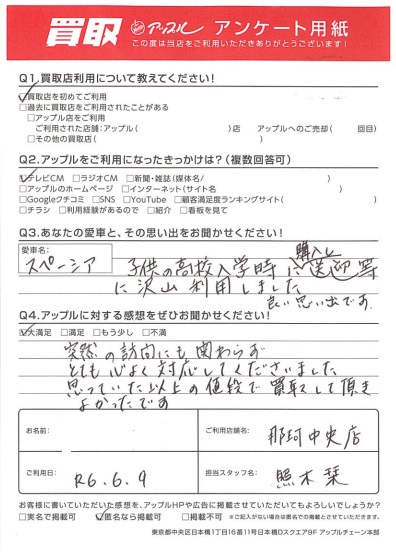 買取 アップル アンケート用紙
この度は当店をご利用いただきありがとうございます!
Q1.買取店利用について教えてください!
☑買取店を初めてご利用
□過去に買取店をご利用されたことがある
□アップル店をご利用
ご利用された店舗:アップル( )店 アップルへのご売却( 回目)
□その他の買取店( )
Q2.アップルをご利用になったきっかけは?(複数回答可)
☑テレビCM □ラジオCM □新聞・雑誌(媒体名/ )
□アップルのホームページ □インターネット(サイト名 )
□Googleクチコミ □SNS □YouTube □顧客満足度ランキングサイト( )
□チラシ □利用経験があるので □紹介 □看板を見て
Q3.あなたの愛車と、その思い出をお聞かせください!
愛車名:
スペーシア
子供の高校入学時に購入し送迎等
に沢山利用しました
良い思い出です
Q4.アップルに対する感想をぜひお聞かせください!
☑大満足 □満足 □もう少し □不満
突然の訪問にも関わらず
とても心よく対応してくださいました
思っていた以上の値段で買取して頂き
よかったです
お名前:
ご利用店舗名:
那珂中央店
ご利用日:
R6.6.9
担当スタッフ名:
照木栞
お客様に書いていただいた感想を、アップルHPや広告に掲載させていただいてもよろしいでしょうか?
□実名で掲載可 ☑匿名なら掲載可 □掲載不可 ※ご記入がない場合は匿名での掲載とさせていただきます。
東京都中央区日本橋1丁目16番11号日本橋Dスクエア9F アップルチェーン本部